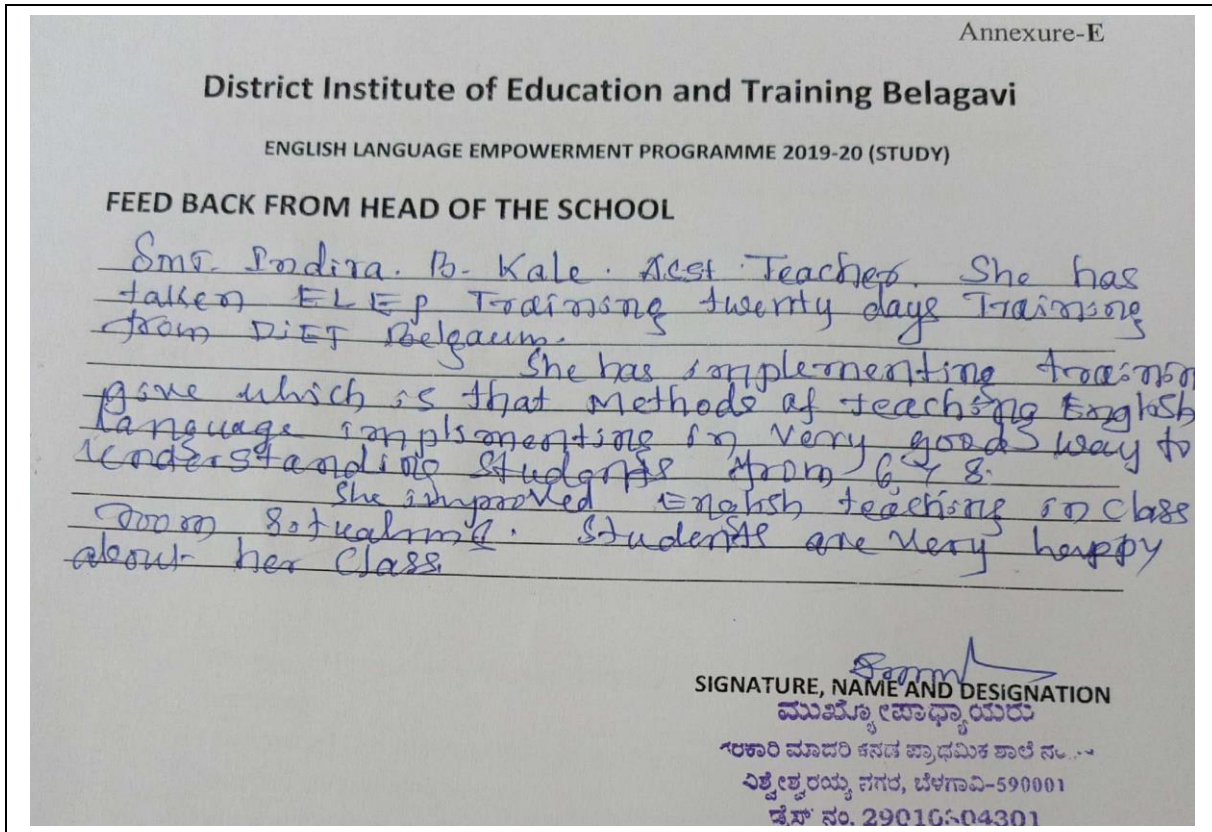 Annexure-E
District Institute of Education and Training Belagavi
ENGLISH LANGUAGE EMPOWERMENT PROGRAMME 2019-20 (STUDY)
FEED BACK FROM HEAD OF THE SCHOOL
Smt. Indira. B. Kale. Asst. Teacher. She has
taken ELEP Training twenty days Training
from DIET Belgaum.
She has implementing
give which is that methods of teaching English
language implementing in very good way to
understanding students from 6
She improved English teaching in class
room. Students are very happy
about her class
SIGNATURE, NAME AND DESIGNATION
ಮುಖ್ಯೋಪಾಧ್ಯಾಯರು
ಸರಕಾರಿ ಮಾದರಿ ಕನಡ ಪ್ರಾಥಮಿಕ ಶಾಲೆ ನಂ.
ವಿಶ್ವೇಶ್ವರಯ್ಯ ನಗರ, ಬೆಳಗಾವಿ-590001
ಡೈಸ್ ನಂ.